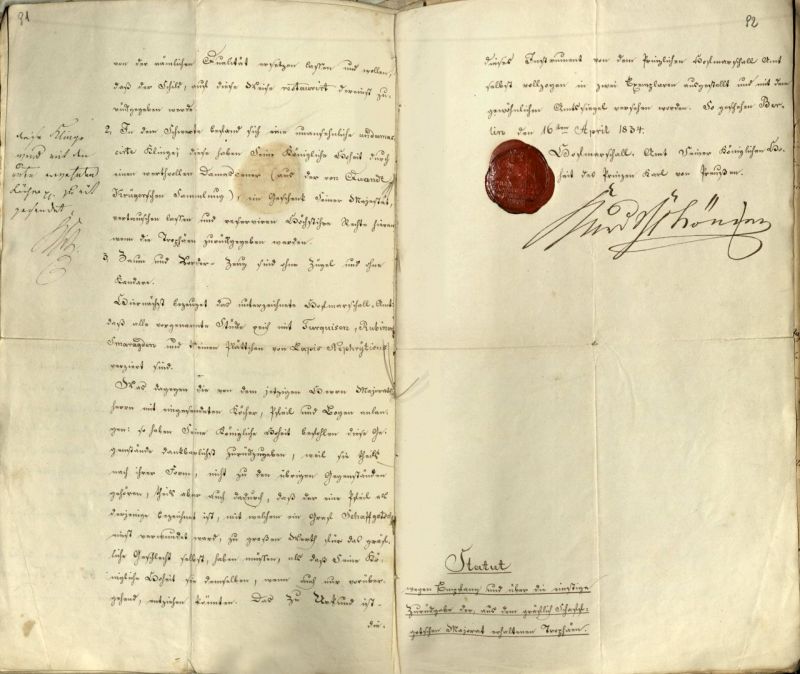 91
von der nämlichen Qualität ersetzen lassen und wollen,
daß der Schild, auf diese Weise restaurirt dereinst zu-
rückgegeben werde.
2, In dem Schwerte befand sich eine unansehnliche
Klinge; diese haben Seine Königliche Hoheit durch
einen werthvollen Damascener (aus der von Quandt
Krügerschen Sammlung), ein Geschenk Seiner Majestät,
vertauschen lassen und reserviren Höchstihre Rechte hieran
wenn die Trophäen zurückgegeben werden.
3, Zaum und Vorder-Zeug sind ohne Zügel und ohne
Kandare.
Hiernächst bezeuget das unterzeichnete Hofmarschall-Amt
daß alle vorgenannte Stücke reich mit Turquisen, Rubinen
Smaragden und kleinen Plättchen von Lapis
verziert sind.
Was dagegen die von dem jetzigen Herrn Majorats-
herrn mit eingesendeten Köcher, Pfeil und Bogen anlan-
gen: so haben Seine Königliche Hoheit befohlen diese Ge-
genstände dankbarlichst zurückzugeben, weil sie theils
nach ihrer Form, nicht zu den übrigen Gegenständen
gehören, theils aber auch dadurch, daß der eine Pfeil als
derjenige bezeichnet ist, mit welchem ein Graf Schaffgotsch
nicht verwundet ward, zu großen Werth für das gräf-
liche Geschlecht selbst, haben müssen, als daß Seine Kö-
nigliche Hoheit sie demselben, wenn auch nur vorüber-
gehend, entziehen könnten. Das zu Urkund ist
die
diese Klinge
wird mit den
Köcher pp. zurück
gesendet.
92
dieses Instrument von dem Prinzlichen Hofmarschall Amt
selbst vollzogen in zwei Exemplaren ausgestellt und mit dem
gewöhnlichen Amtssiegel versehen worden. So geschehen Ber-
lin den 16ten April 1834.
Hofmarschall-Amt Seiner Königlichen Ho-
heit des Prinzen Karl von Preußen.
Statut
gegen Empfang und über die einstige
Zurückgabe der, aus dem gräflich Schaff-
gotschen Majorat erhaltenen Trophäen.